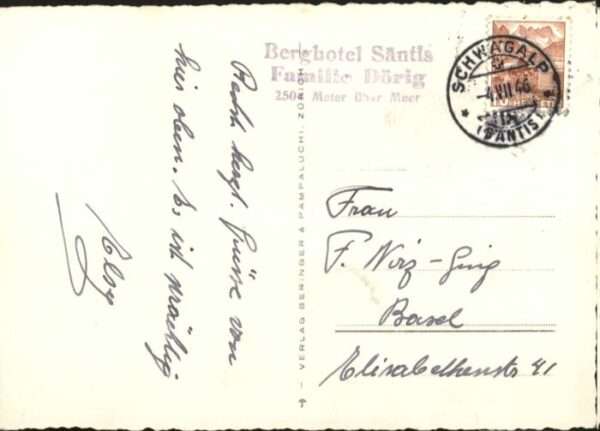 Berghotel Säntis
Familie Dörig
2504 Meter über Meer
SCHWÄGALP
-4.VII.46
(SÄNTIS)
Recht herzl. Grüsse von
hier oben. Es ist prächtig
Elsy
— VERLAG BERINGER & PAMPALUCHI, ZÜRICH
Frau
F. Nviz-Gung
Basel
Elisabethenstr 41